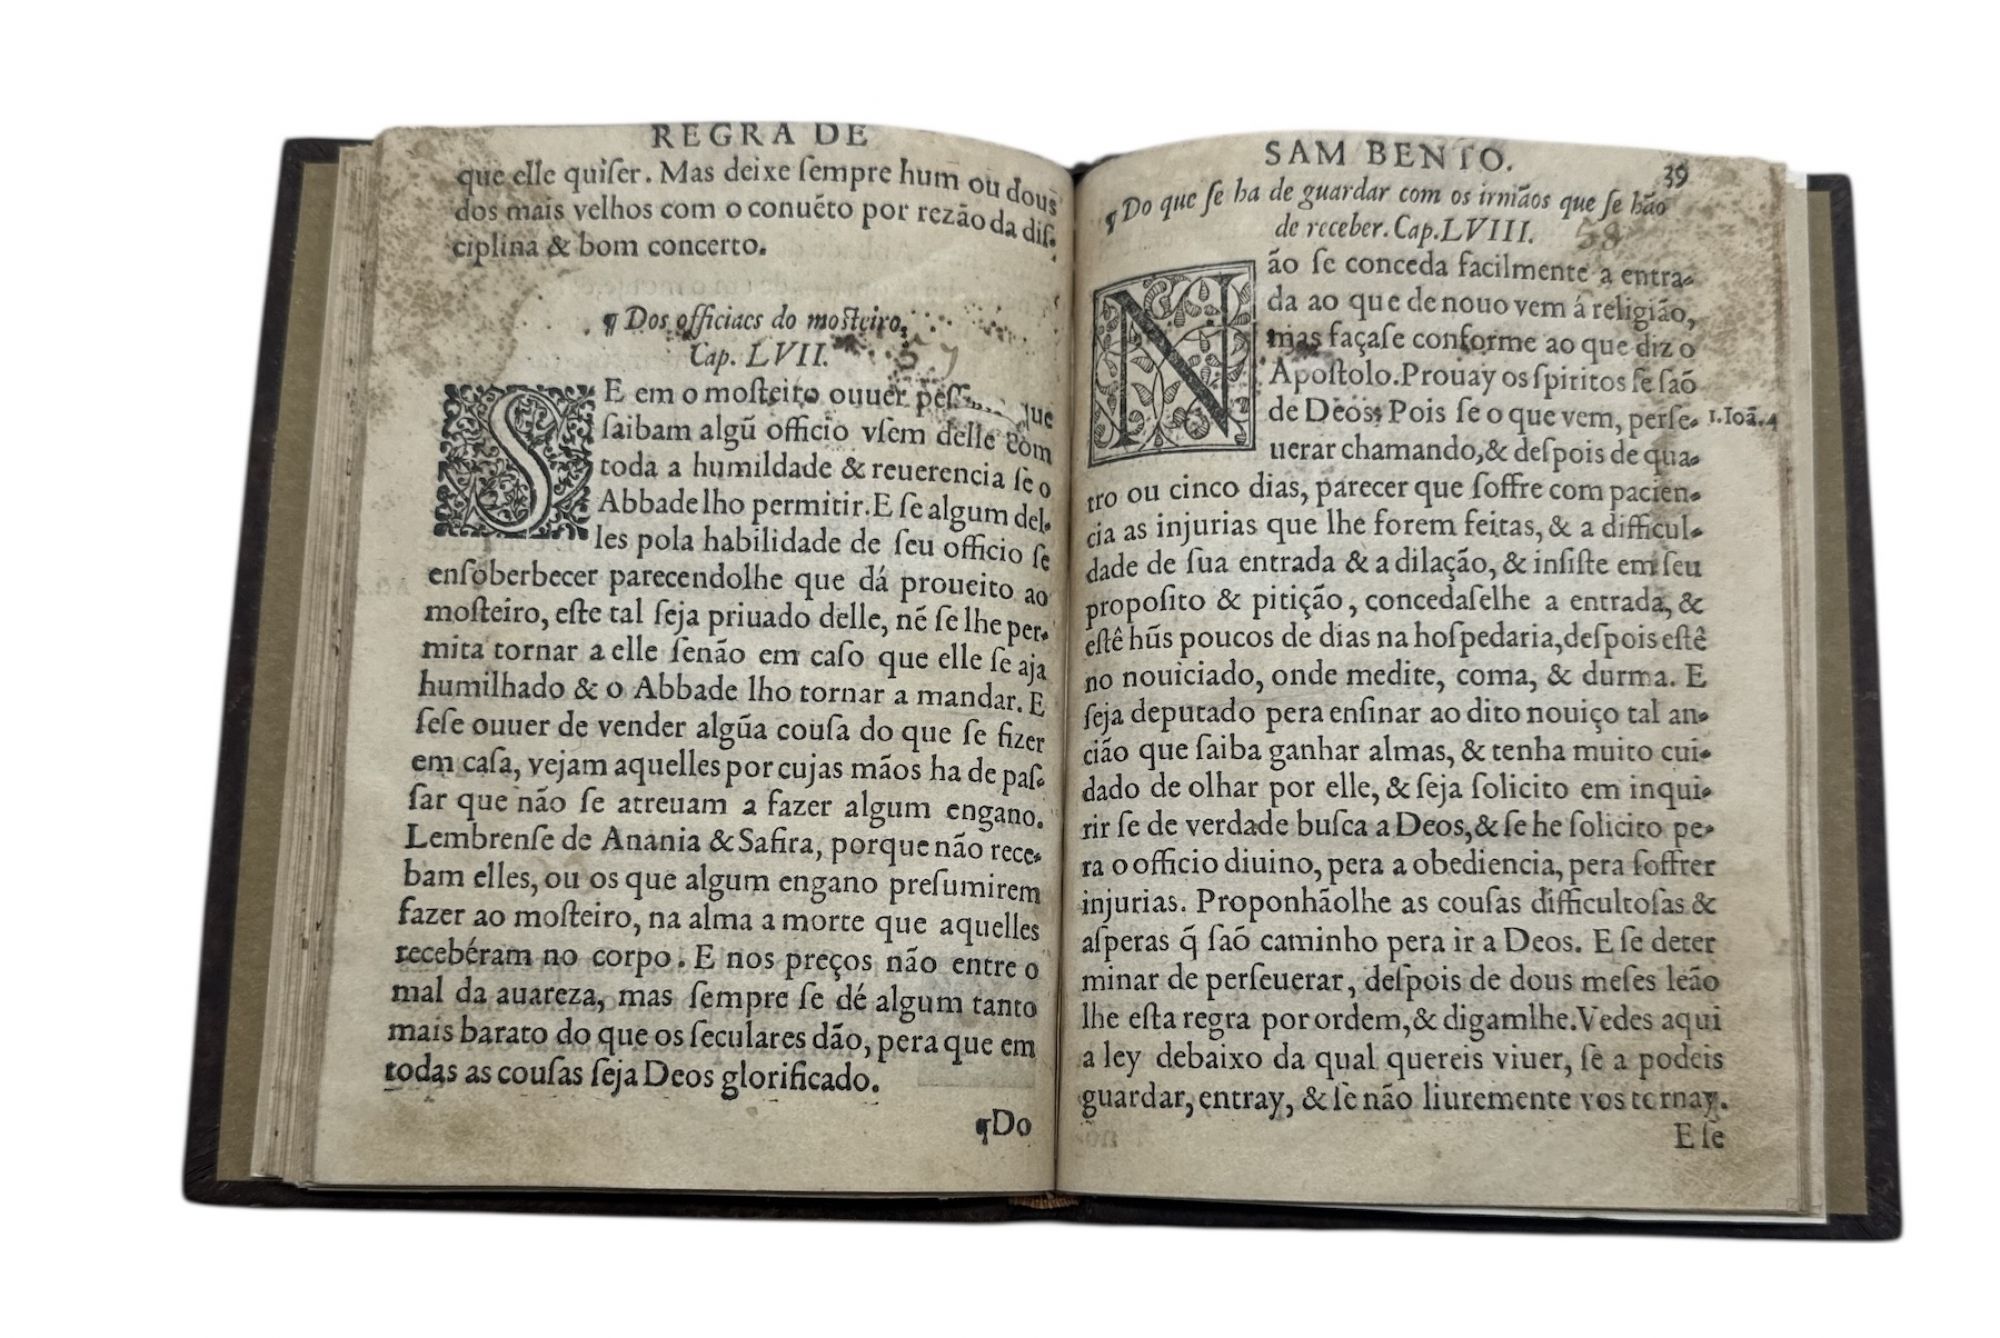 REGRA DE
que elle quiſer. Mas deixe ſempre hum ou dous
dos mais velhos com o conuẽto por rezão da diſ-
ciplina & bom concerto.
¶ Dos officiaes do moſteiro,
Cap. LVII. 57
SE em o moſteiro ouuer que
ſaibam algũ officio vſem delle com
toda a humildade & reuerencia ſe o
Abbade lho permitir. E ſe algum del-
les pola habilidade de ſeu officio ſe
enſoberbecer parecendolhe que dá proueito ao
moſteiro, eſte tal ſeja priuado delle, nẽ ſe lhe per-
mita tornar a elle ſenão em caſo que elle ſe aja
humilhado & o Abbade lho tornar a mandar. E
ſeſe ouuer de vender algũa couſa do que ſe fizer
em caſa, vejam aquelles por cujas mãos ha de paſ-
ſar que não ſe atreuam a fazer algum engano.
Lembrenſe de Anania & Safira, porque não rece-
bam elles, ou os que algum engano preſumirem
fazer ao moſteiro, na alma a morte que aquelles
recebéram no corpo. E nos preços não entre o
mal da auareza, mas ſempre ſe dé algum tanto
mais barato do que os ſeculares dão, pera que em
todas as couſas ſeja Deos glorificado.
¶Do
SAM BENTO. 39
¶ Do que ſe ha de guardar com os irmãos que ſe hão
de receber. Cap. LVIII. 58
NÃo ſe conceda facilmente a entra-
da ao que de nouo vem á religião,
mas façaſe conforme ao que diz o
Apoſtolo. Prouay os ſpiritos ſe ſaõ
de Deos; Pois ſe o que vem, perſe- 1. Ioã. 4
uerar chamando, & deſpois de qua-
tro ou cinco dias, parecer que ſoffre com pacien-
cia as injurias que lhe forem feitas, & a difficul-
dade de ſua entrada & a dilação, & inſiſte em ſeu
propoſito & pitição, concedaſelhe a entrada, &
eſtê hũs poucos de dias na hoſpedaria, deſpois eſtê
no nouiciado, onde medite, coma, & durma. E
ſeja deputado pera enſinar ao dito nouiço tal an-
cião que ſaiba ganhar almas, & tenha muito cui-
dado de olhar por elle, & ſeja ſolicito em inqui-
rir ſe de verdade buſca a Deos, & ſe he ſolicito pe-
ra o officio diuino, pera a obediencia, pera ſoffrer
injurias. Proponhãolhe as couſas difficultoſas &
aſperas q̃ ſaõ caminho pera ir a Deos. E ſe deter
minar de perſeuerar, deſpois de dous meſes leão
lhe eſta regra por ordem, & digamlhe. Vedes aqui
a ley debaixo da qual quereis viuer, ſe a podeis
guardar, entray, & ſe não liuremente vos tornay.
E ſe